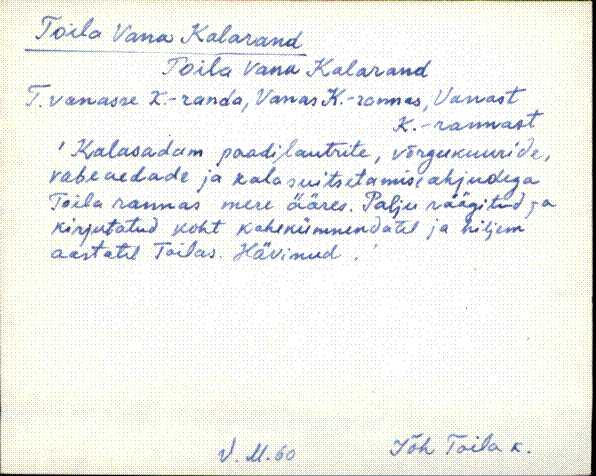 Toila Vana Kalarand
Toila Vana Kalarand
T. vanasse K.-randa, Vanas K.-rannas, Vanast
K.-rannast
' Kalasadam paadilautrite, võrgukuuride,
vabeaedade ja kalasuitsetamisahjudega
Toila rannas mere ääres. Palju räägitud ja
kirjutatud koht kahekümnendatel ja hiljem
aastatel Toilas. Hävinud. '
V. M. 60
Jõh Toila k.